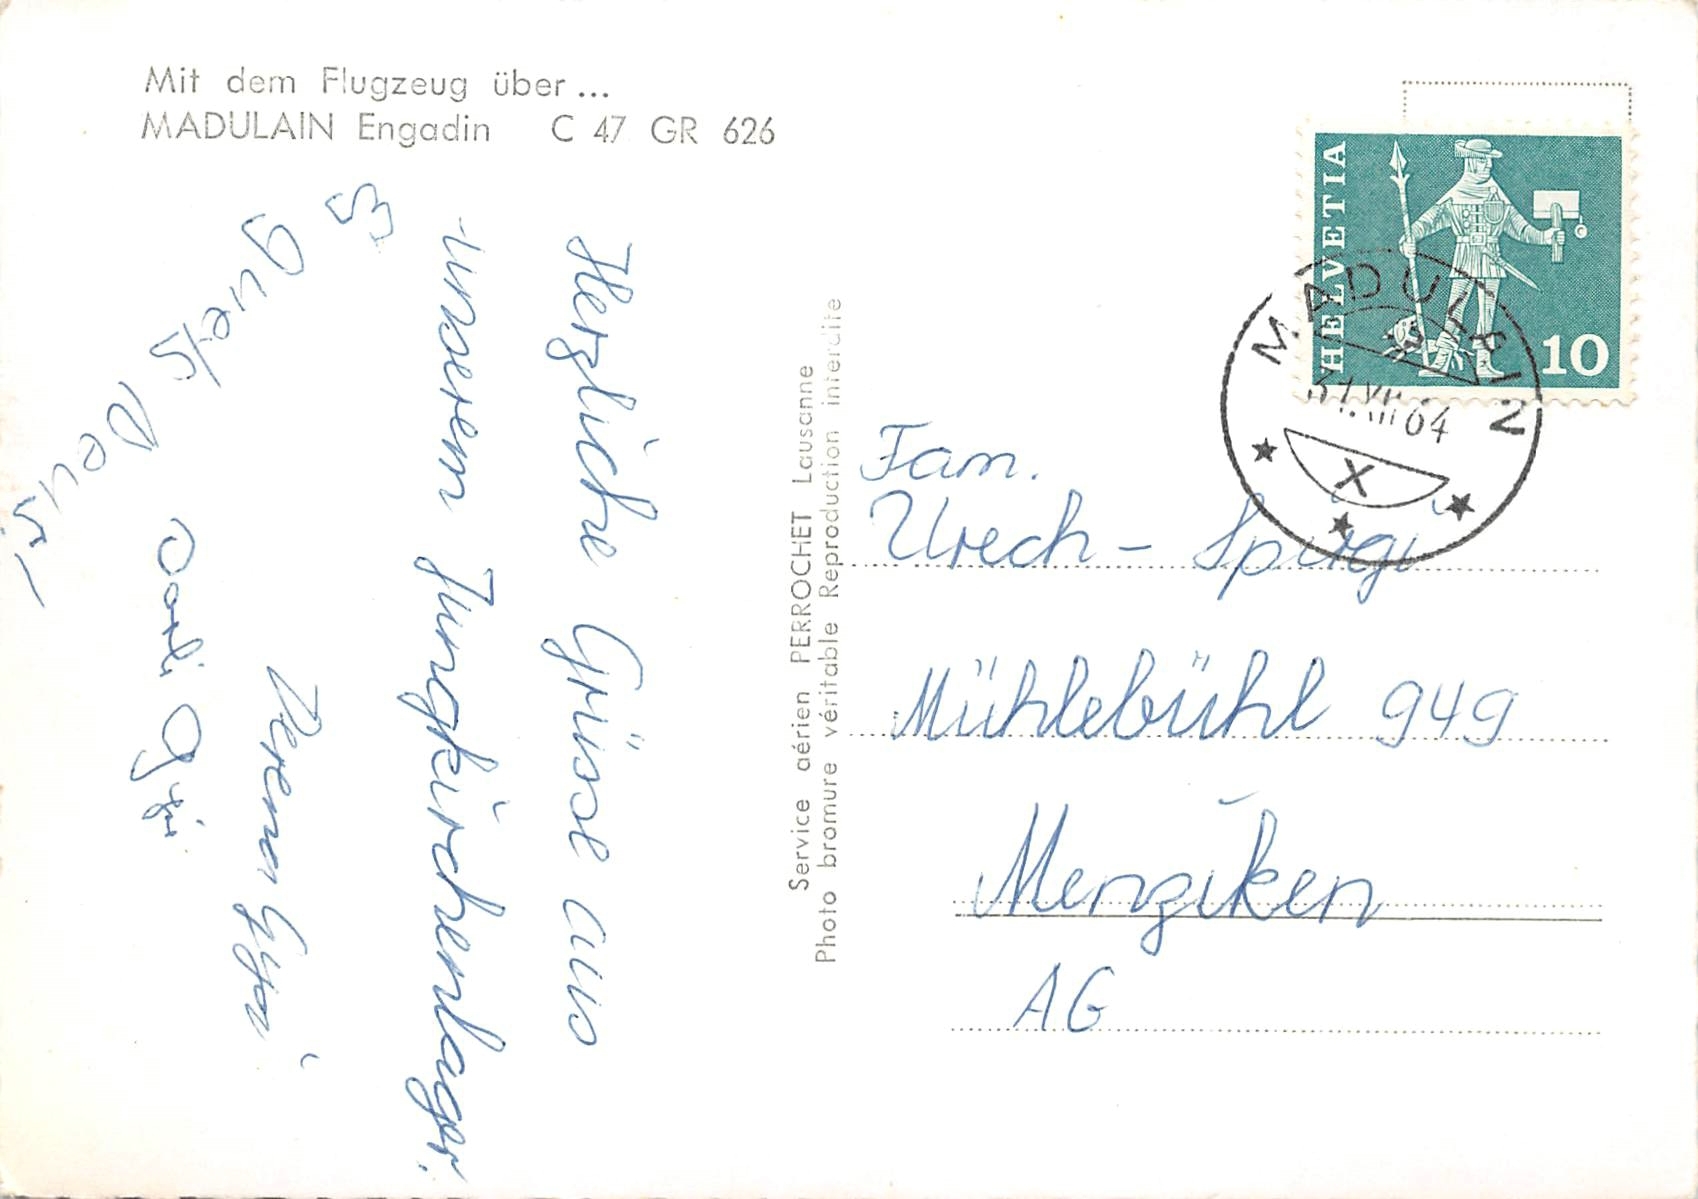 Mit dem Flugzeug über...
MADULAIN Engadin C 47 GR 626
Herzliche Grüsse aus
unserem Jungkirchenlager.
Verena Gysi
Es
guets Neus
Service aérien PERROCHET Lausanne
Photo bromure véritable Reproduction interdite
HELVETIA
10
MADULAIN
31.XII 64
X
Fam.
Urech - Spirgi
Mühlebühl 949
Menziken
AG